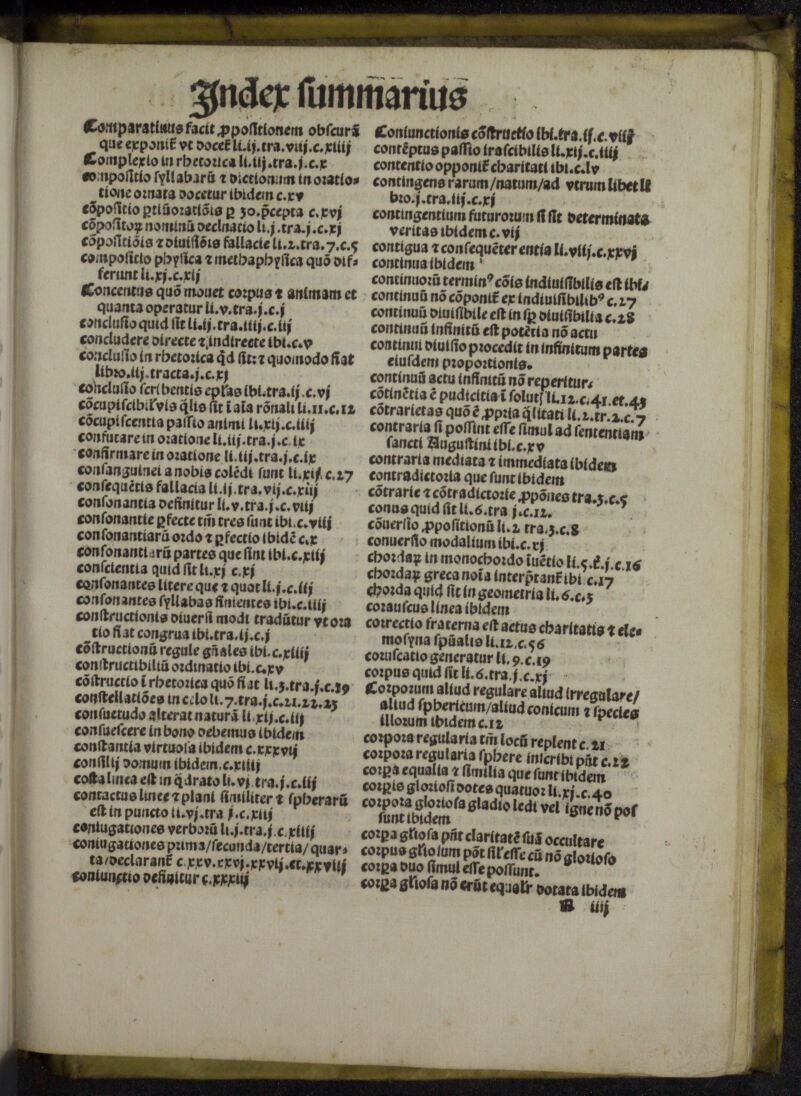 Index summarius
Comparatiuus facit ꝓpositionem obscurā
que exponit᷑ vt docet᷑ li.ij.tra.viij.c.xiiij
Complexio in rhetorica li.iij.tra.j.c.x
compositio syllabarū ⁊ dictionum in oratio⸗
tione ornata docetur ibidem c.xv
cōpositio ꝑtiūorationis ꝑ 30.p̄cepta c.xvj
cōpositoꝝ nominū declinatio li.j.tra.j.c.xj
cōpositiōis ⁊ diuisiōis fallacie li.2.tra.7.c.5
compositio physica ⁊ methaphysica quō dif⸗
ferunt li.xj.c.xij
Concentus quō mouet corpus ⁊ animam et
quanta operatur li.v.tra.j.c.j
conclusio quid sit li.ij.tra.iiij.c.iij
concludere directe ⁊ indirecte ibi.c.v
conclusio in rhetorica qd̄ sit: ⁊ quomodo fiat
libro.iij.tracta.j.c.xj
conclusio scribentis ep̄las ibi.tra.ij.c.vj
cōcupiscibil᷑vis q̄lis sit ī aīa rōnali li.11.c.12
cōcupiscentia passio animi li.xij.c.iiij
confutare in oratione li.iij.tra.j.c.ix
confirmare in oratione li.iij.tra.j.c.ix
consanguinei a nobis colēdi sunt li.xij.c.27
consequētis fallacia li.ij.tra.vij.c.xiij
consonantia definitur li.v.tra.j.c.viij
consonantie ꝑfecte tm̄ tres sunt ibi.c.viij
consonantiarū ordo ⁊ ꝑfectio ibidē c.x
consonantiarū partes que sint ibi.c.xiij
conscientia quid sit li.xj c.xj
consonantes litere que ⁊ quot li.j.c.iij
consonantes syllabas finientes ibi.c.iiij
constructionis diuersi modi tradūtur vt ora
tio fiat congrua ibi.tra.ij.c.j
cōstructionū regule gn̄ales ibi.c.xiiij
constructibiliū ordinatio ibi.c.xv
cōstructio ī rhetorica quō fiat li.3.tra.j.c.19
constellatiōes in celo li.7.tra.j.c.21.22.23
consuetudo alterat naturā li.xij.c.iij
consuescere in bono debemus ibidem
constantia virtuosa ibidem c.xxxvij
consilij donum ibidem.c.xiiij
costa linea est in q̄drato li.vj.tra.j.c.iij
contactus linee ⁊ plani similiter ⁊ spherarū
est in puncto li.vj.tra j.c.xiij
coniugationes verborū li.j.tra.j.c.xiiij
coniugationes prima/secunda/tertia/ quar⸗
ta/declarant᷑ c.xxv.xxvj.xxvij.et.xxviij
coniunctio definitur c.xxxiij
Coniunctionis cōstructio ibi.tra.ij.c.viij
contēptus passio irascibilis li.xij.c.iiij
contentio opponit᷑ charitati ibi.c.lv
contingens rarum/natum/ad vtrum libet li
bro.j.tra.iij.c.xj
contingentium futurorum si sit determinata
veritas ibidem c.vij
contigua ⁊ consequēter entia li.viij.c.xxvj
continua ibidem
continuorū terminꝰ cōis indiuisibilis est ibi⸗
continuū nō cōponit᷑ ex indiuisibilibꝰ c.27
continuū diuisibile est in sꝑ diuisibilia c.28
continuū infinitū est potētia nō actu
continui diuisio procedit in infinitum partes
eiusdem proportionis.
continuū actu infinitū nō reperitur.
cōtinētia ē pudicitia ī solut᷑ li.12.c.41.et.43
cōtrarietas quō ē ꝓpria q̄litati li.2.tr.2.c.7
contraria si possint esse simul ad sententiam
sancti Augustini ibi.c.xv
contraria mediata ⁊ immediata ibidem
contradictoria que sunt ibidem
cōtrarie ⁊ cōtradictorie ꝓpōnes tra.3.c.5
conus quid sit li.6.tra j.c.12.
cōuersio ꝓpositionū li.2 tra.3.c.8
conuersio modalium ibi.c.xj
chordaꝝ in monochordo īuētio li.5.t᷑.j.c.16
chordaꝝ greca noīa interp̄tant᷑ ibi c.17
chorda quid sit in geometria li.6.c.3
coraufcus linea ibidem
correctio fraterna est actus charitatis ⁊ ele⸗
mosyna spūalis li.12.c.56
coruscatio generatur li.9.c.19
corpus quid sit li.6.tra.j.c.xj
Corporum aliud regulare aliud irregulare/
aliud sphericum/aliud conicum ⁊ species
illorum ibidem c.12
corpora regularia tm̄ locū replent c.21
corpora regularia sphere inscribi pn̄t c.22
corꝑa equalia ⁊ similia que sunt ibidem
corꝑis gloriosi dotes quatuor li.xj.c.40
corpora gloriosa gladio ledi vel igne nō pos
sunt ibidem
corꝑa gl᷑iosa pn̄t claritatē suā occultare
corpus gl᷑iosum pōt sil᷑ esse cū nō glorioso
corꝑa duo simul esse possunt.
corꝑa gl᷑iosa nō erūt equalr̄ dotata ibidem
B iiij